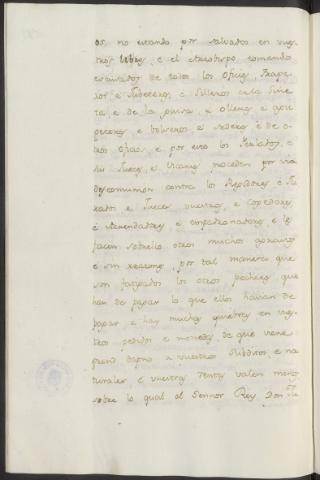 os no estando por salvados en vues
tros libros e el Arzobispo tomando
escusados de todos los oficios, Trape
ros e Tuberos, e Silleros en la Sine
ta e de la pintura, e olleros e agu
geteros e bolseros e sederos e de o
tros oficios e por esto los Perlados, e
sus Jueces, e Vicarios proceden por via
de descomunion contra los Regidores e Ju
rados e Jueces vuestros, e Cogedores,
e Arrendadores e empadronadores, e les
facen sobrello otros muchos agravios
e sin razones, por tal manera que
son fatigados los otros pecheros que
han de pagar lo que ellos havian de
pagar e hay muchas quiebras en vues
tros pedidos e monedas de que viene
grand dapno a vuestros subditos e na
turales e vuestras rentas valen menos
sobre lo qual al Señor Rey Don